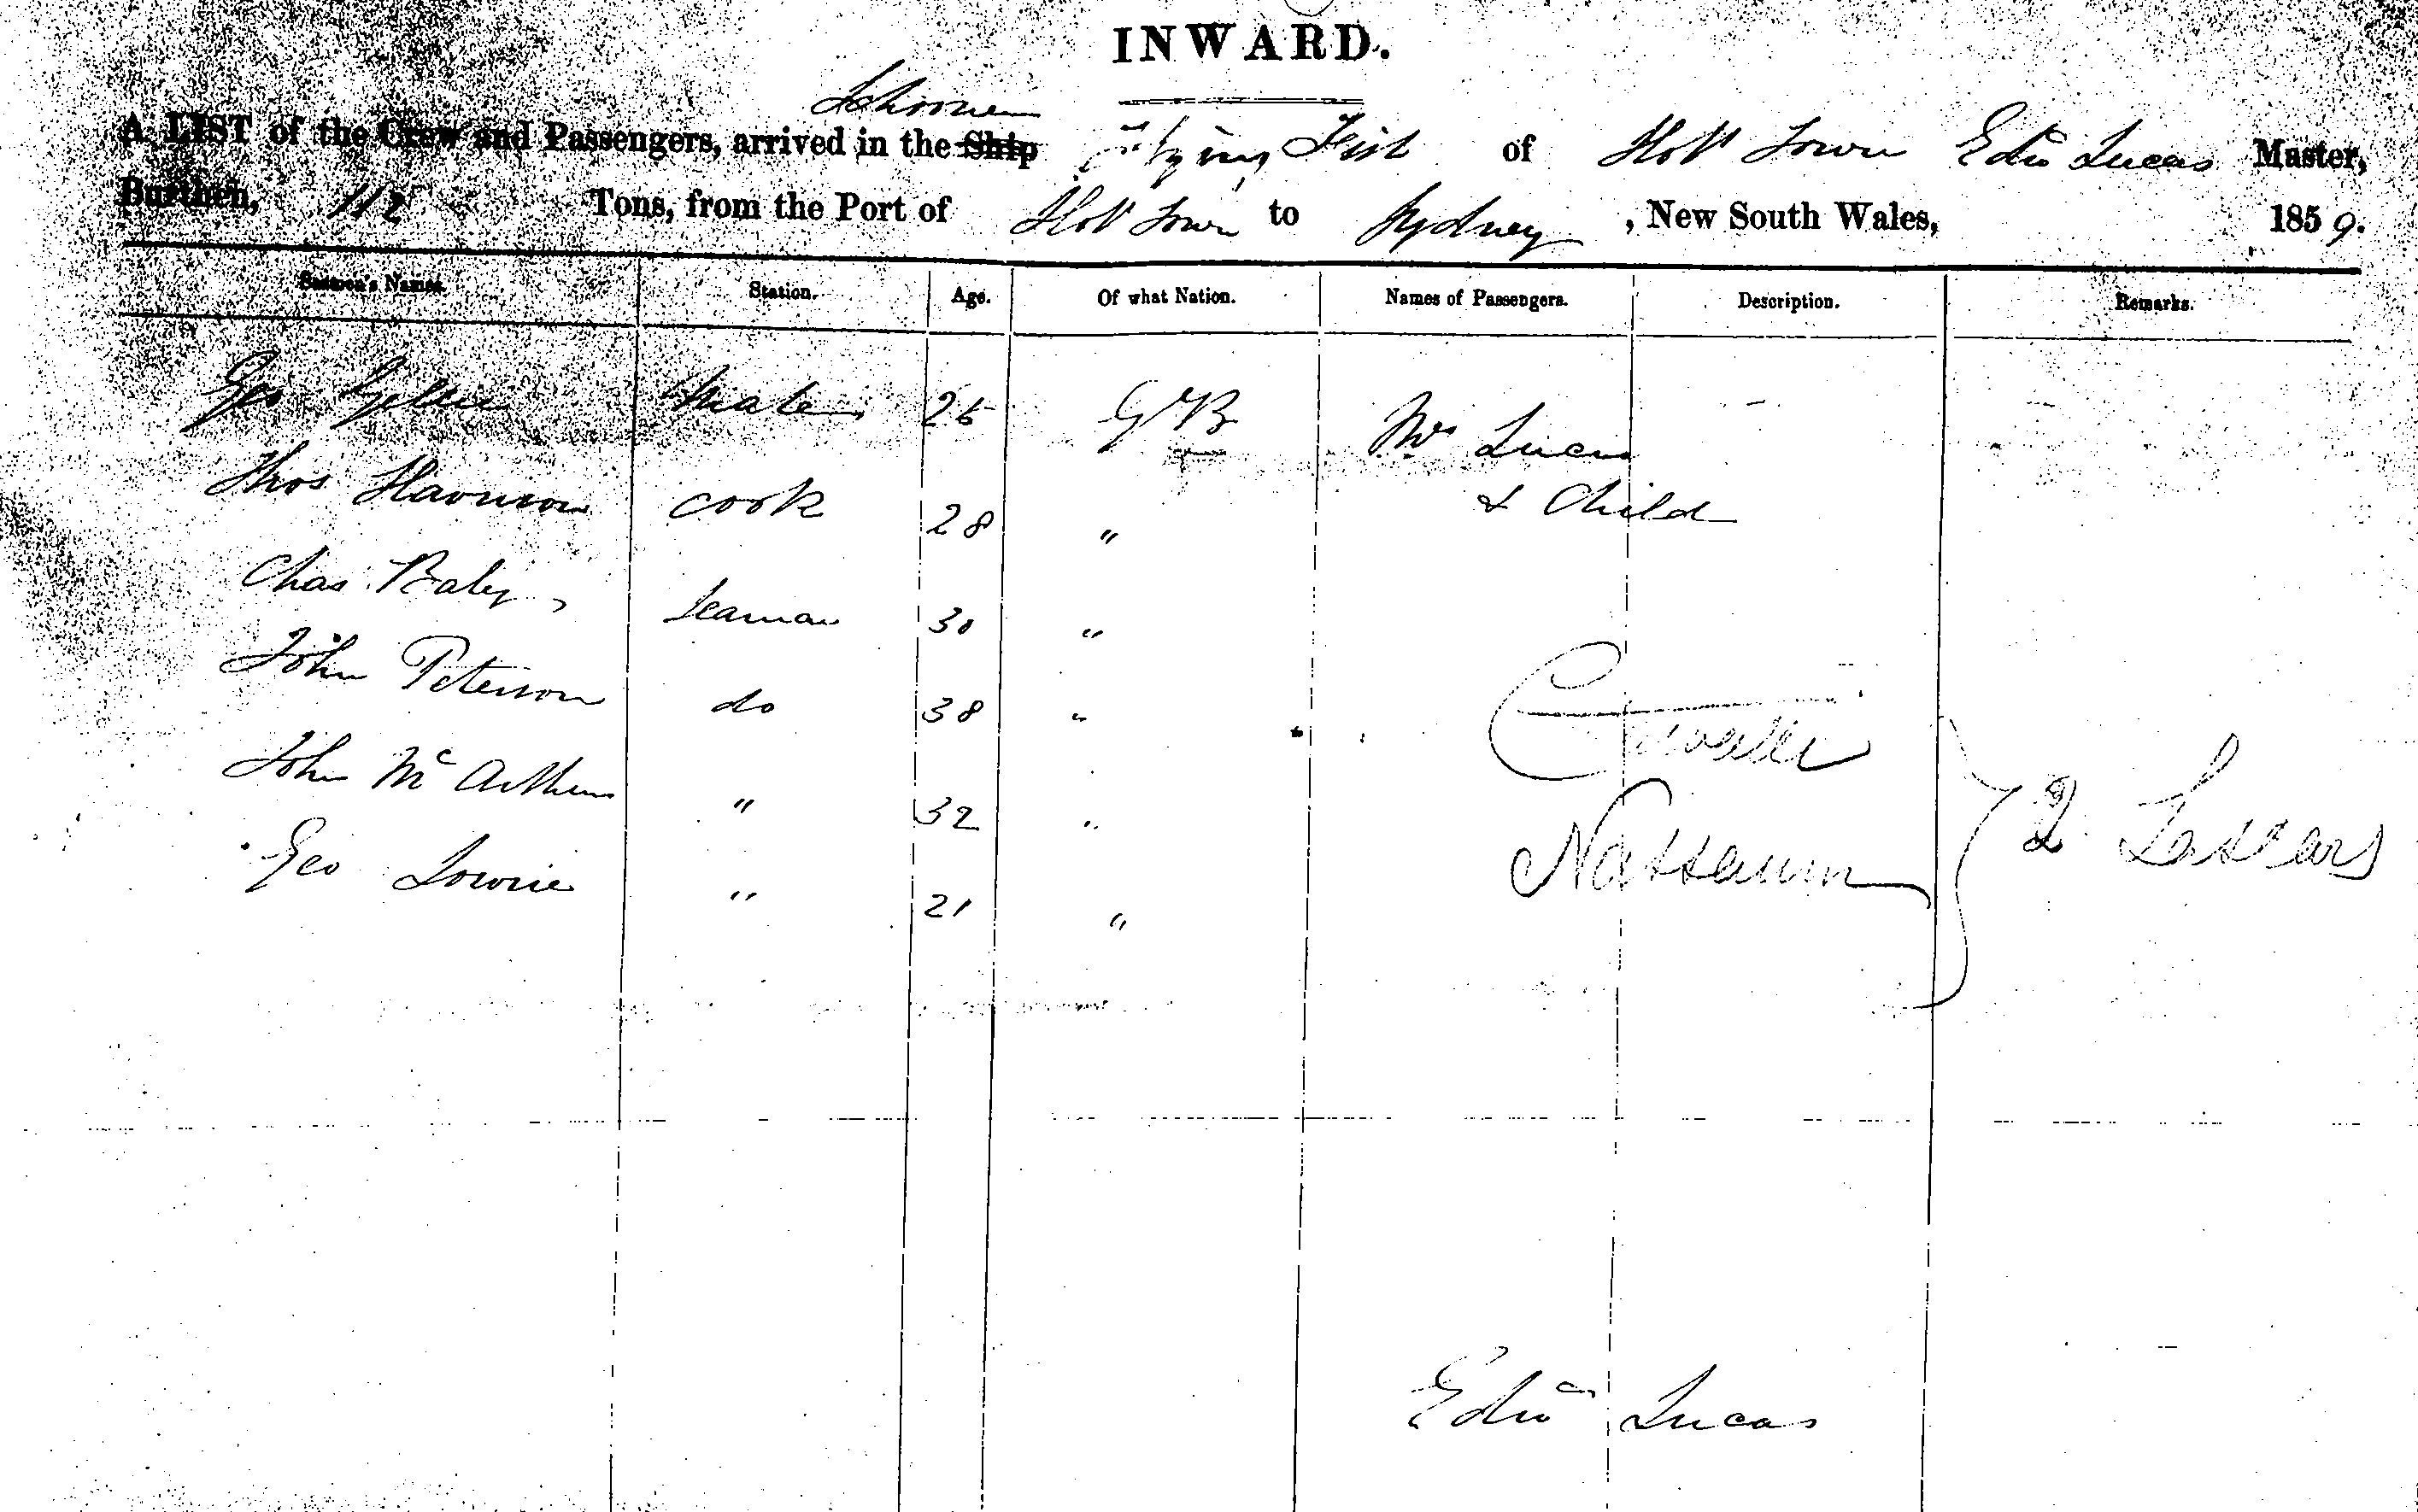 INWARD.
Schooner
A LIST of the Crew and Passengers, arrived in the Ship Flying Fish of Hob Town Edwd Lucas Master,
Burthen, 112 Tons, from the Port of Hob Town to Sydney, New South Wales, 1859.
Seamen's Names. Station. Age. Of what Nation. Names of Passengers. Description. Remarks.
Geo Mate 25 G B Mrs Lucas
Thos Harrison cook 28 " & Child
Chas Baley Seaman 30 "
John Peterson do 38 "
John McArthur " 32 "
Nassaum 2 Lascars
Geo Lowrie " 21 "
Edwd Lucas